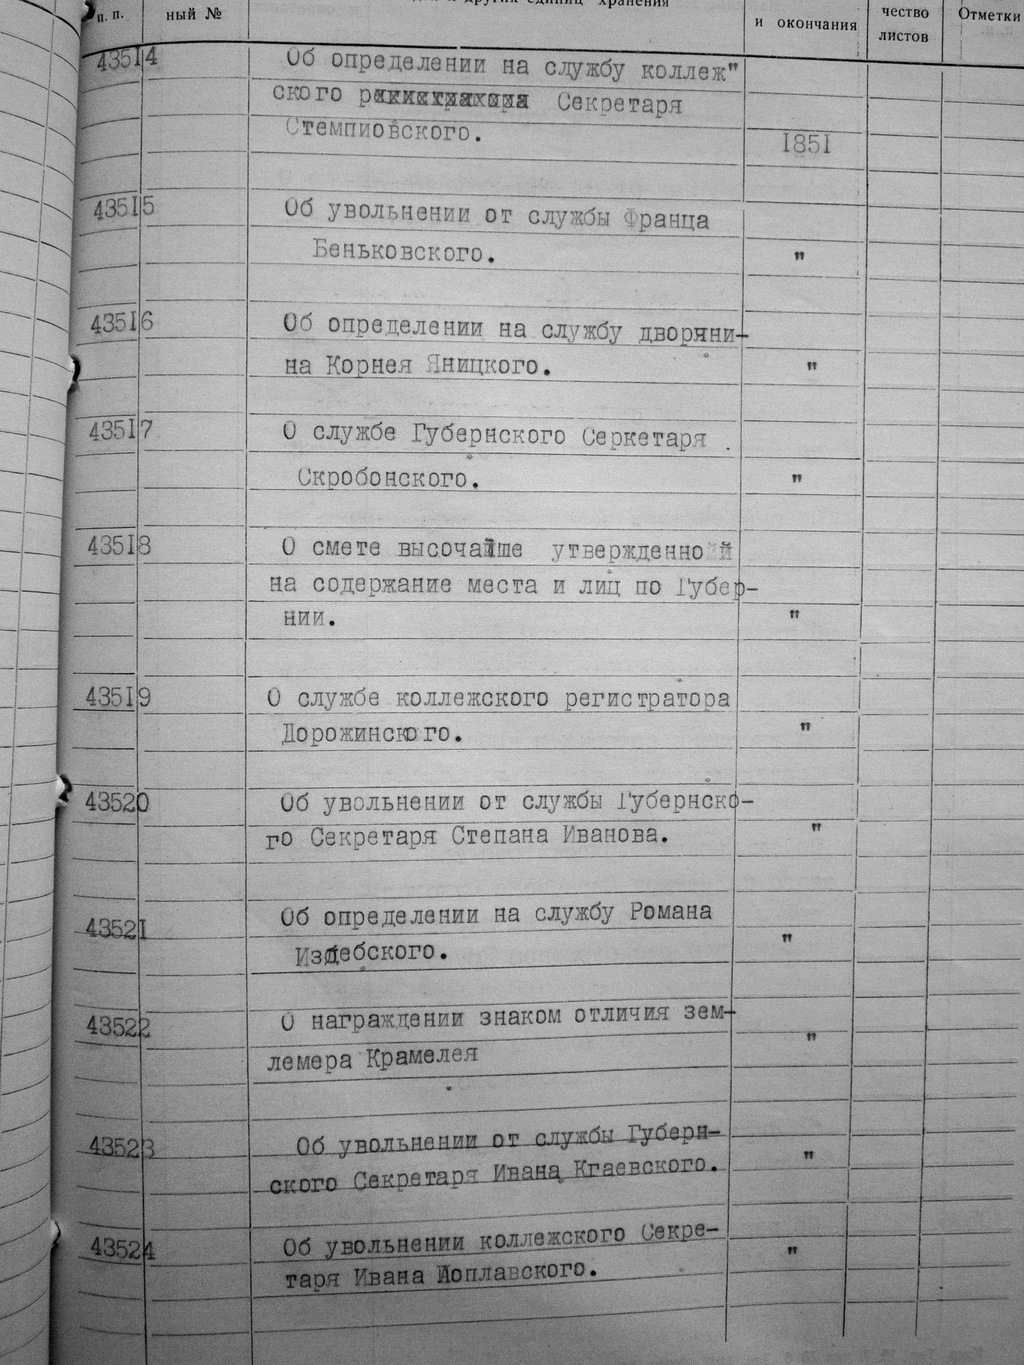 п. п.
ный №
других единиц хранения
и окончания
чество
листов
Отметки
43514 Об определении на службу коллеж"
ского Секретаря
Стемпиовского.
1851
43515 Об увольнении от службы Франца
Беньковского. "
43516 Об определении на службу дворяни-
на Корнея Яницкого. "
43517 О службе Губернского Серкетаря .
Скробонского. "
43518 О смете высочайше утвержденной
на содержание места и лиц по Губер-
нии. "
43519 О службе коллежского регистратора
Дорожинского. "
43520 Об увольнении от службы Губернско-
го Секретаря Степана Иванова. "
43521 Об определении на службу Романа
Издебского. "
43522 О награждении знаком отличия зем-
лемера Крамелея "
43523 Об увольнении от службы Губерн-
ского Секретаря Ивана Кгаевского. "
43524 Об увольнении коллежского Секре-
таря Ивана Поплавского. "